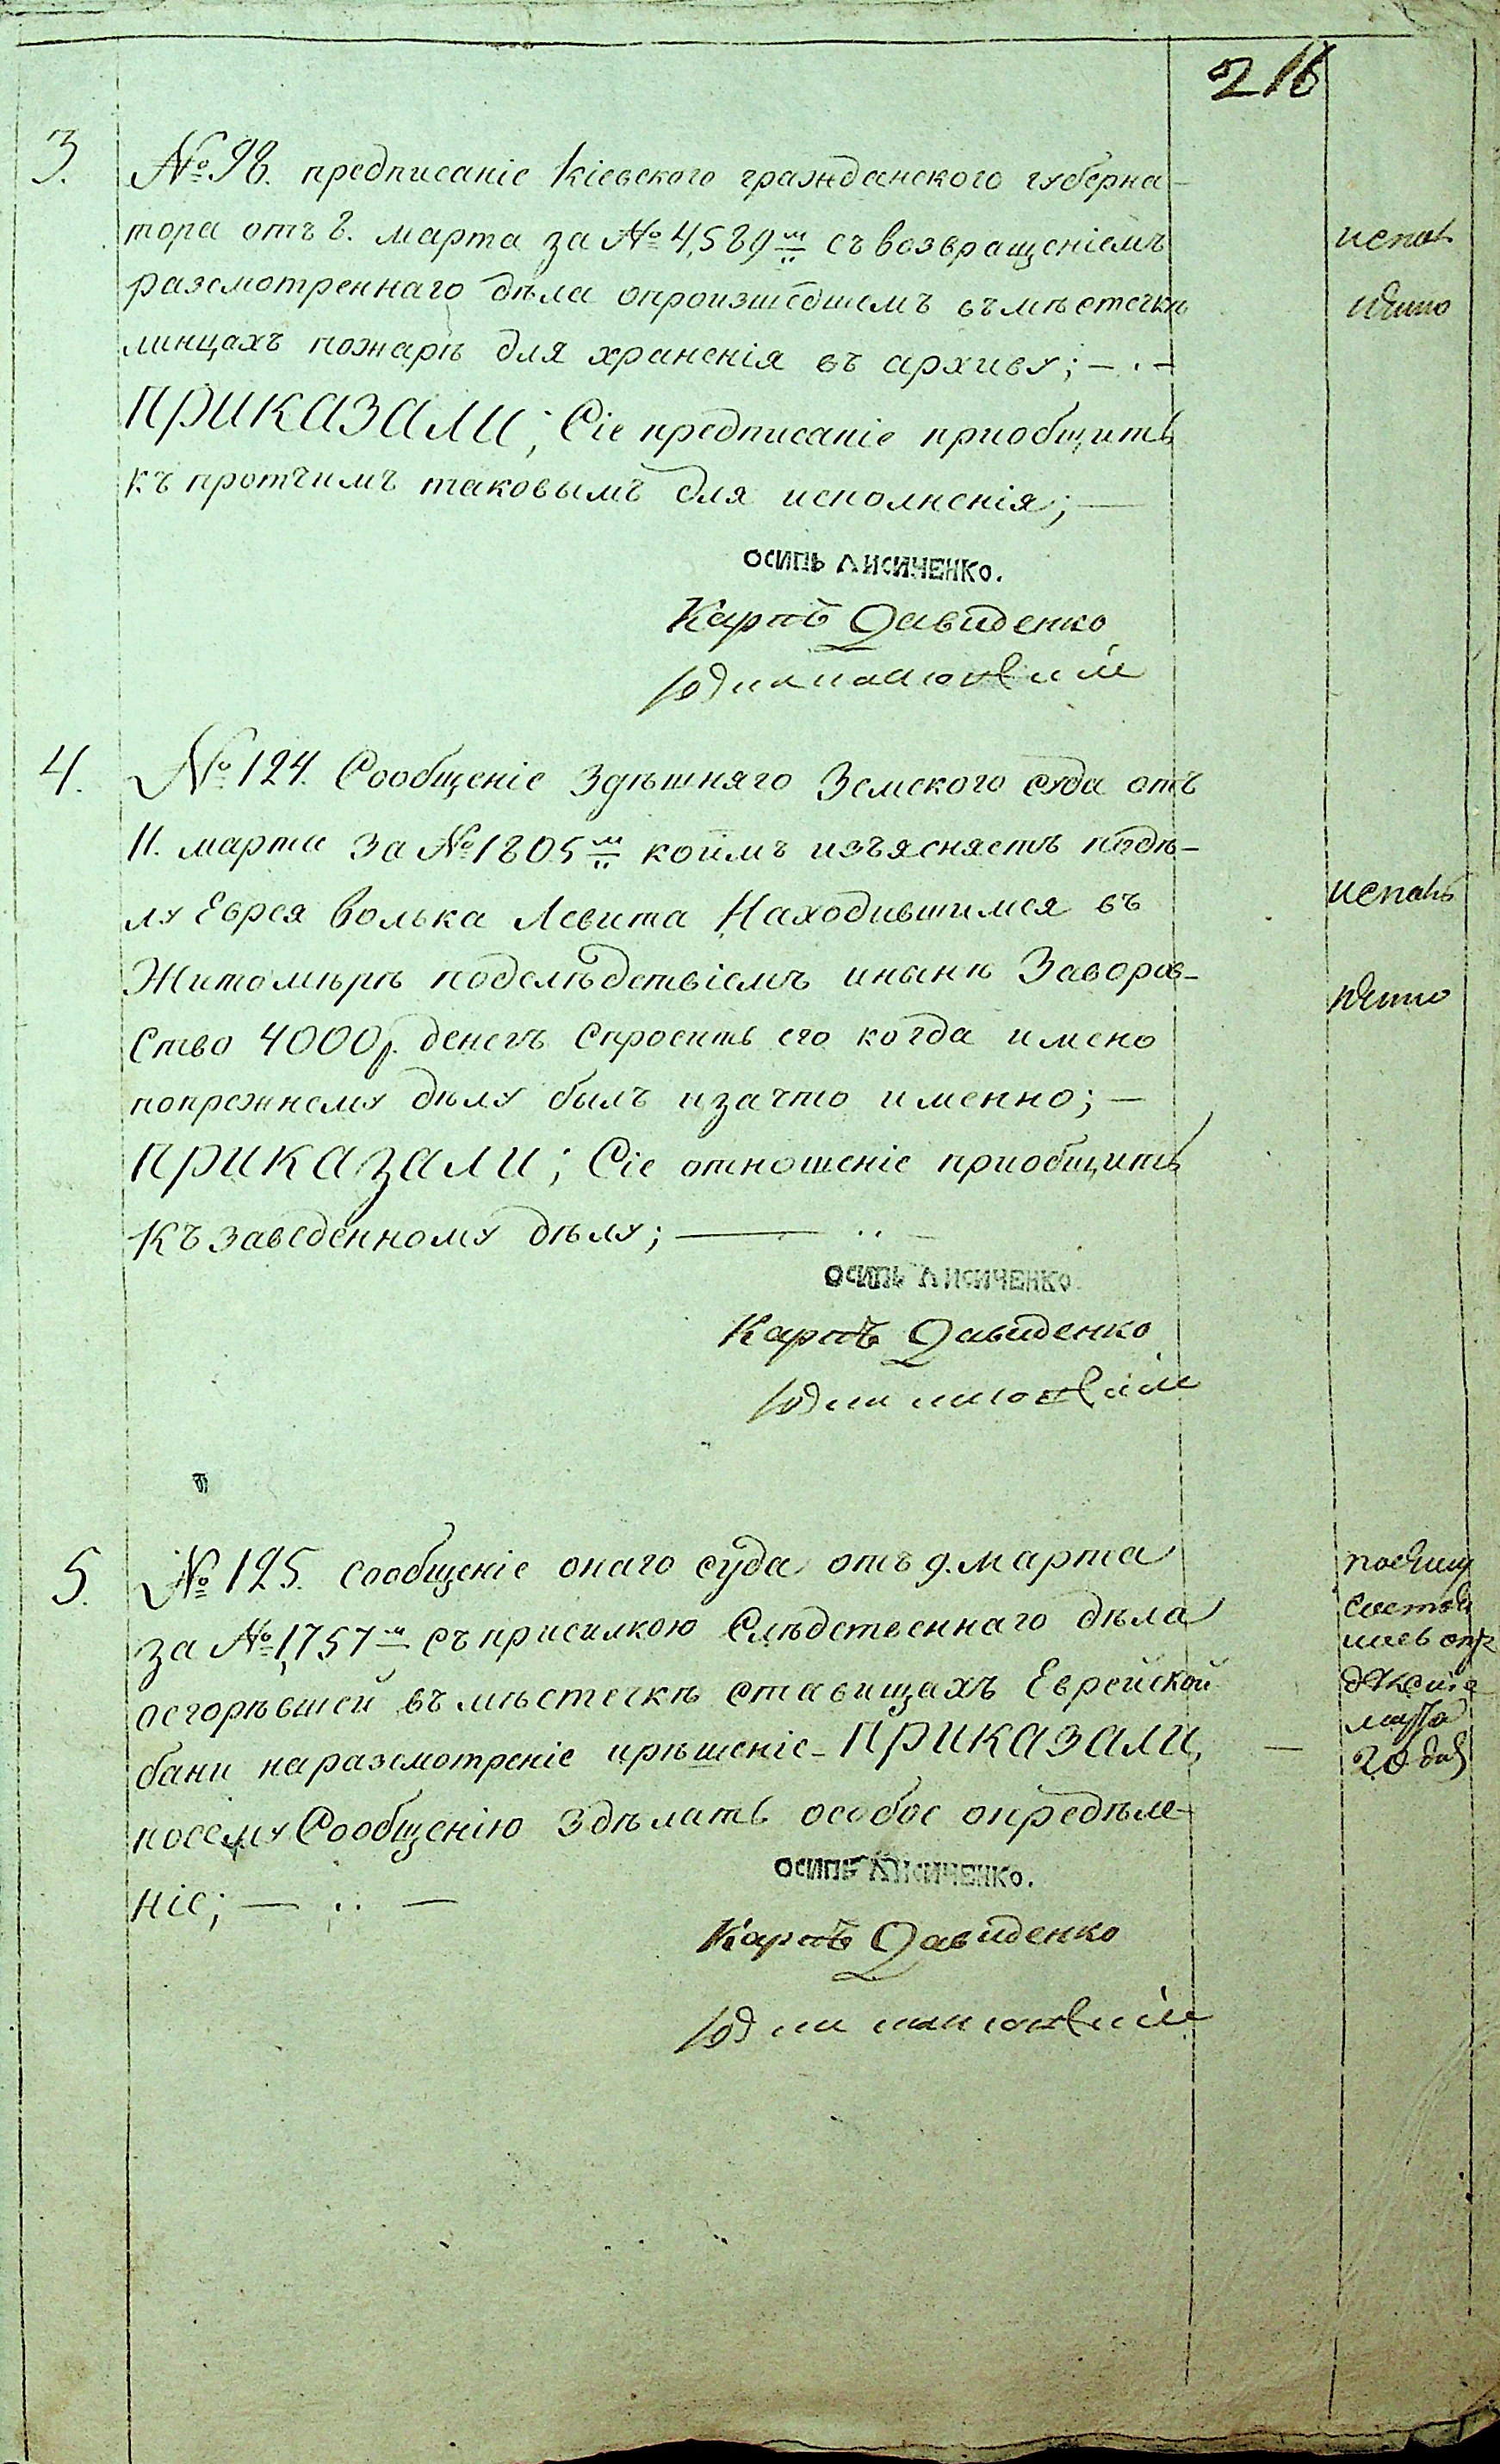 216
3. №98. предписаніе Кіевского гражданского губерна-
тора отъ 8. марта за №4,589м съ возвращеніемъ
разсмотреннаго дѣла опроизшедшемъ въмѣстечкѣ
линцахъ пожарѣ для храненія въ архиву;
приказали; Сіе предписаніе приобщить
къ протчимъ таковымъ для исполненія;
исполь
нено
осипъ лисиченко.
Карпъ Давиденко
4. №124. Сообщеніе Здѣшняго Земского суда отъ
11. марта за №1805м коимъ изъясняетъ подѣ-
лу Еврея волька Левита Находившимся въ
Житомѣрѣ подслѣдствіемъ инынѣ Заворов-
ство 4000р. денегъ Спросить его когда имено
попрежнему дѣлу былъ изачто именно;
приказали; Сіе отношеніе приобщить
къ заведенному дѣлу;
исполь
нено
осипъ лисиченко.
Карпъ Давиденко
5. №125. сообщеніе онаго суда отъ 9. марта
за №1,757м съ присилкою Слѣдственнаго дѣла
осгорѣвшей въмѣстечкѣ ставищахъ Еврейской
бани наразсмотреніе ирѣшеніе - приказали,
посему Сообщенію здѣлать особое опредѣле-
ніе;
марта
20
осипъ лисиченко.
Карпъ Давиденко